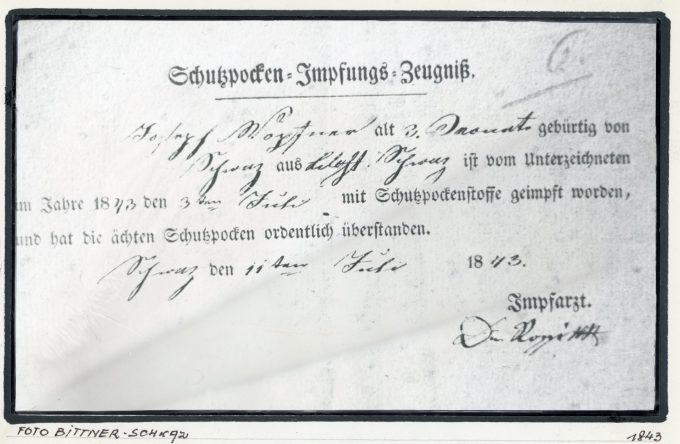 6.
Schutzpocken-Impfungs-Zeugniß.
Joseph Wöpfner alt 3. Monat gebürtig von
Schwaz aus Schwaz ist vom Unterzeichneten
im Jahre 1843 den 3ten Juli mit Schutzpockenstoffe geimpft worden,
und hat die ächten Schutzpocken ordentlich überstanden.
Schwaz den 11ten Juli 1843.
Impfarzt.
Dr
FOTO BITTNER-SCHWAZ 1843